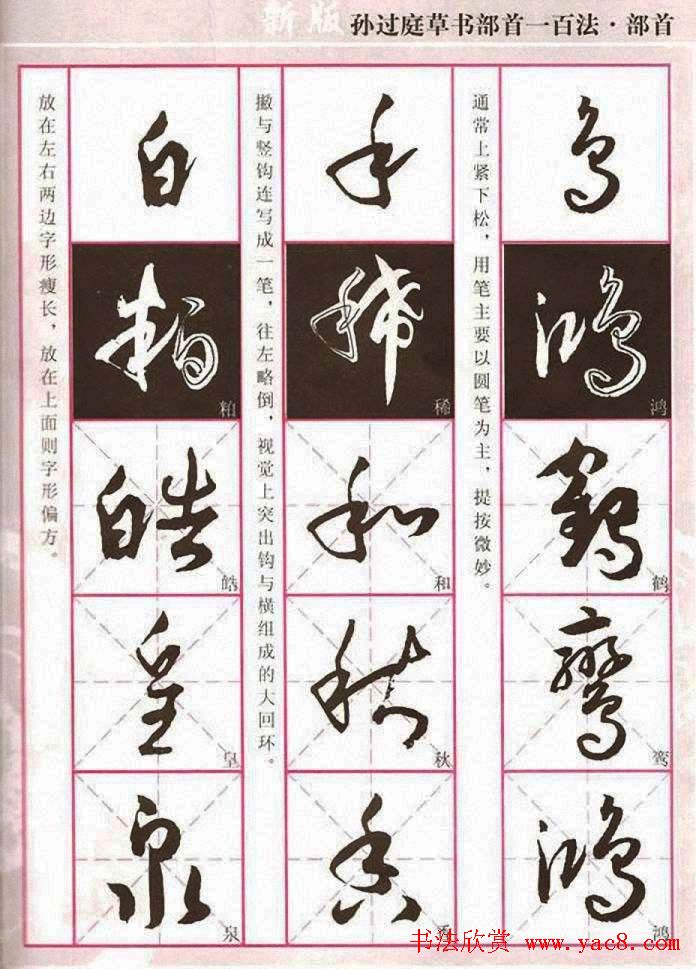 新版 孙过庭草书部首一百法·部首
通常上紧下松，用笔主要以圆笔为主，提按微妙。
鸟
鸿 鸿
鹤 鹤
鸾 鸾
鸿 鸿
撇与竖钩连写成一笔，往左略倒，视觉上突出钩与横组成的大回环。
禾
稀 稀
和 和
秋 秋
香
放在左右两边字形瘦长，放在上面则字形偏方。
白
粕 粕
皓 皓
皇 皇
泉 泉
书法欣赏 www.yac8.com